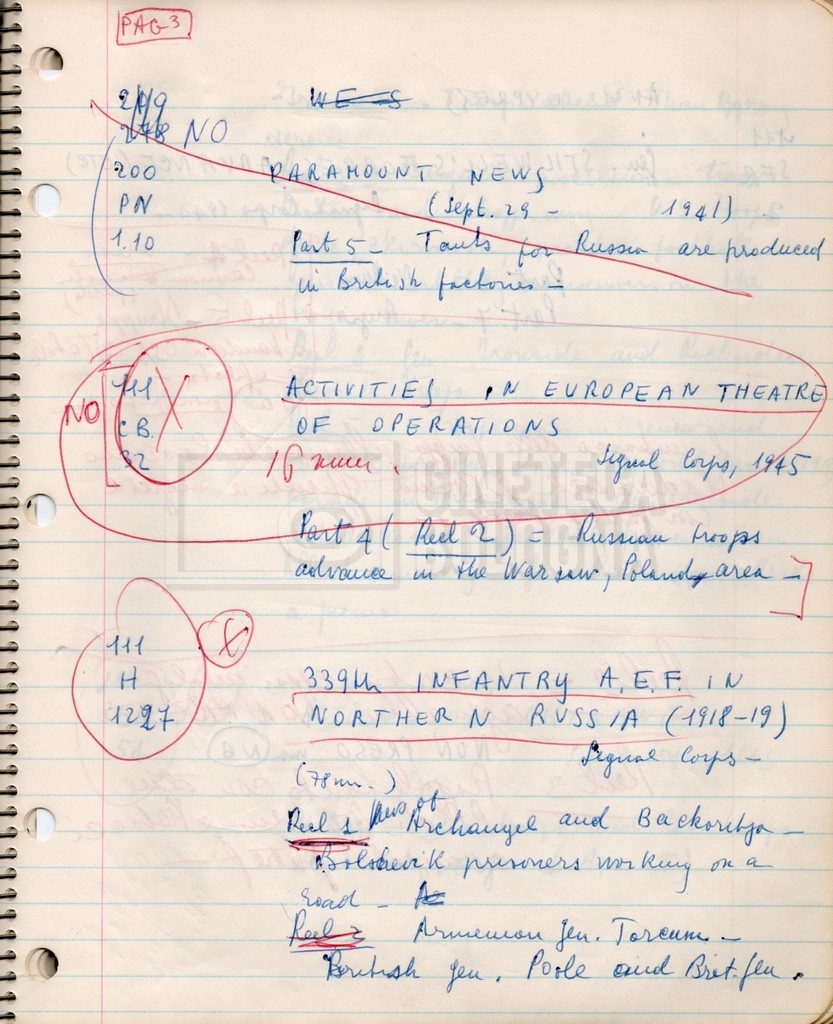 PAG 3
278 NO
200 PARAMOUNT NEWS
PN (Sept. 29 - 1941)
1.10 Part 5 - Tanks for Russia are produced
in British factories -
NO 111 X ACTIVITIES IN EUROPEAN THEATRE
CB. OF OPERATIONS
32 16 mm. Signal Corps, 1945
CINETECA
BOLOGNA
Part 4 (Reel 2) = Russian troops
advance in the Warsaw, Poland, area -
111 X
H 339th INFANTRY A.E.F. IN
1227 NORTHERN RUSSIA (1918-19)
Signal Corps -
(78m.)
Reel 1 Views of Archangel and Backoritza -
Bolshevik prisoners working on a
road -
Reel 2 Armenian Gen. Torcum -
British Gen. Poole and Brit. Gen.